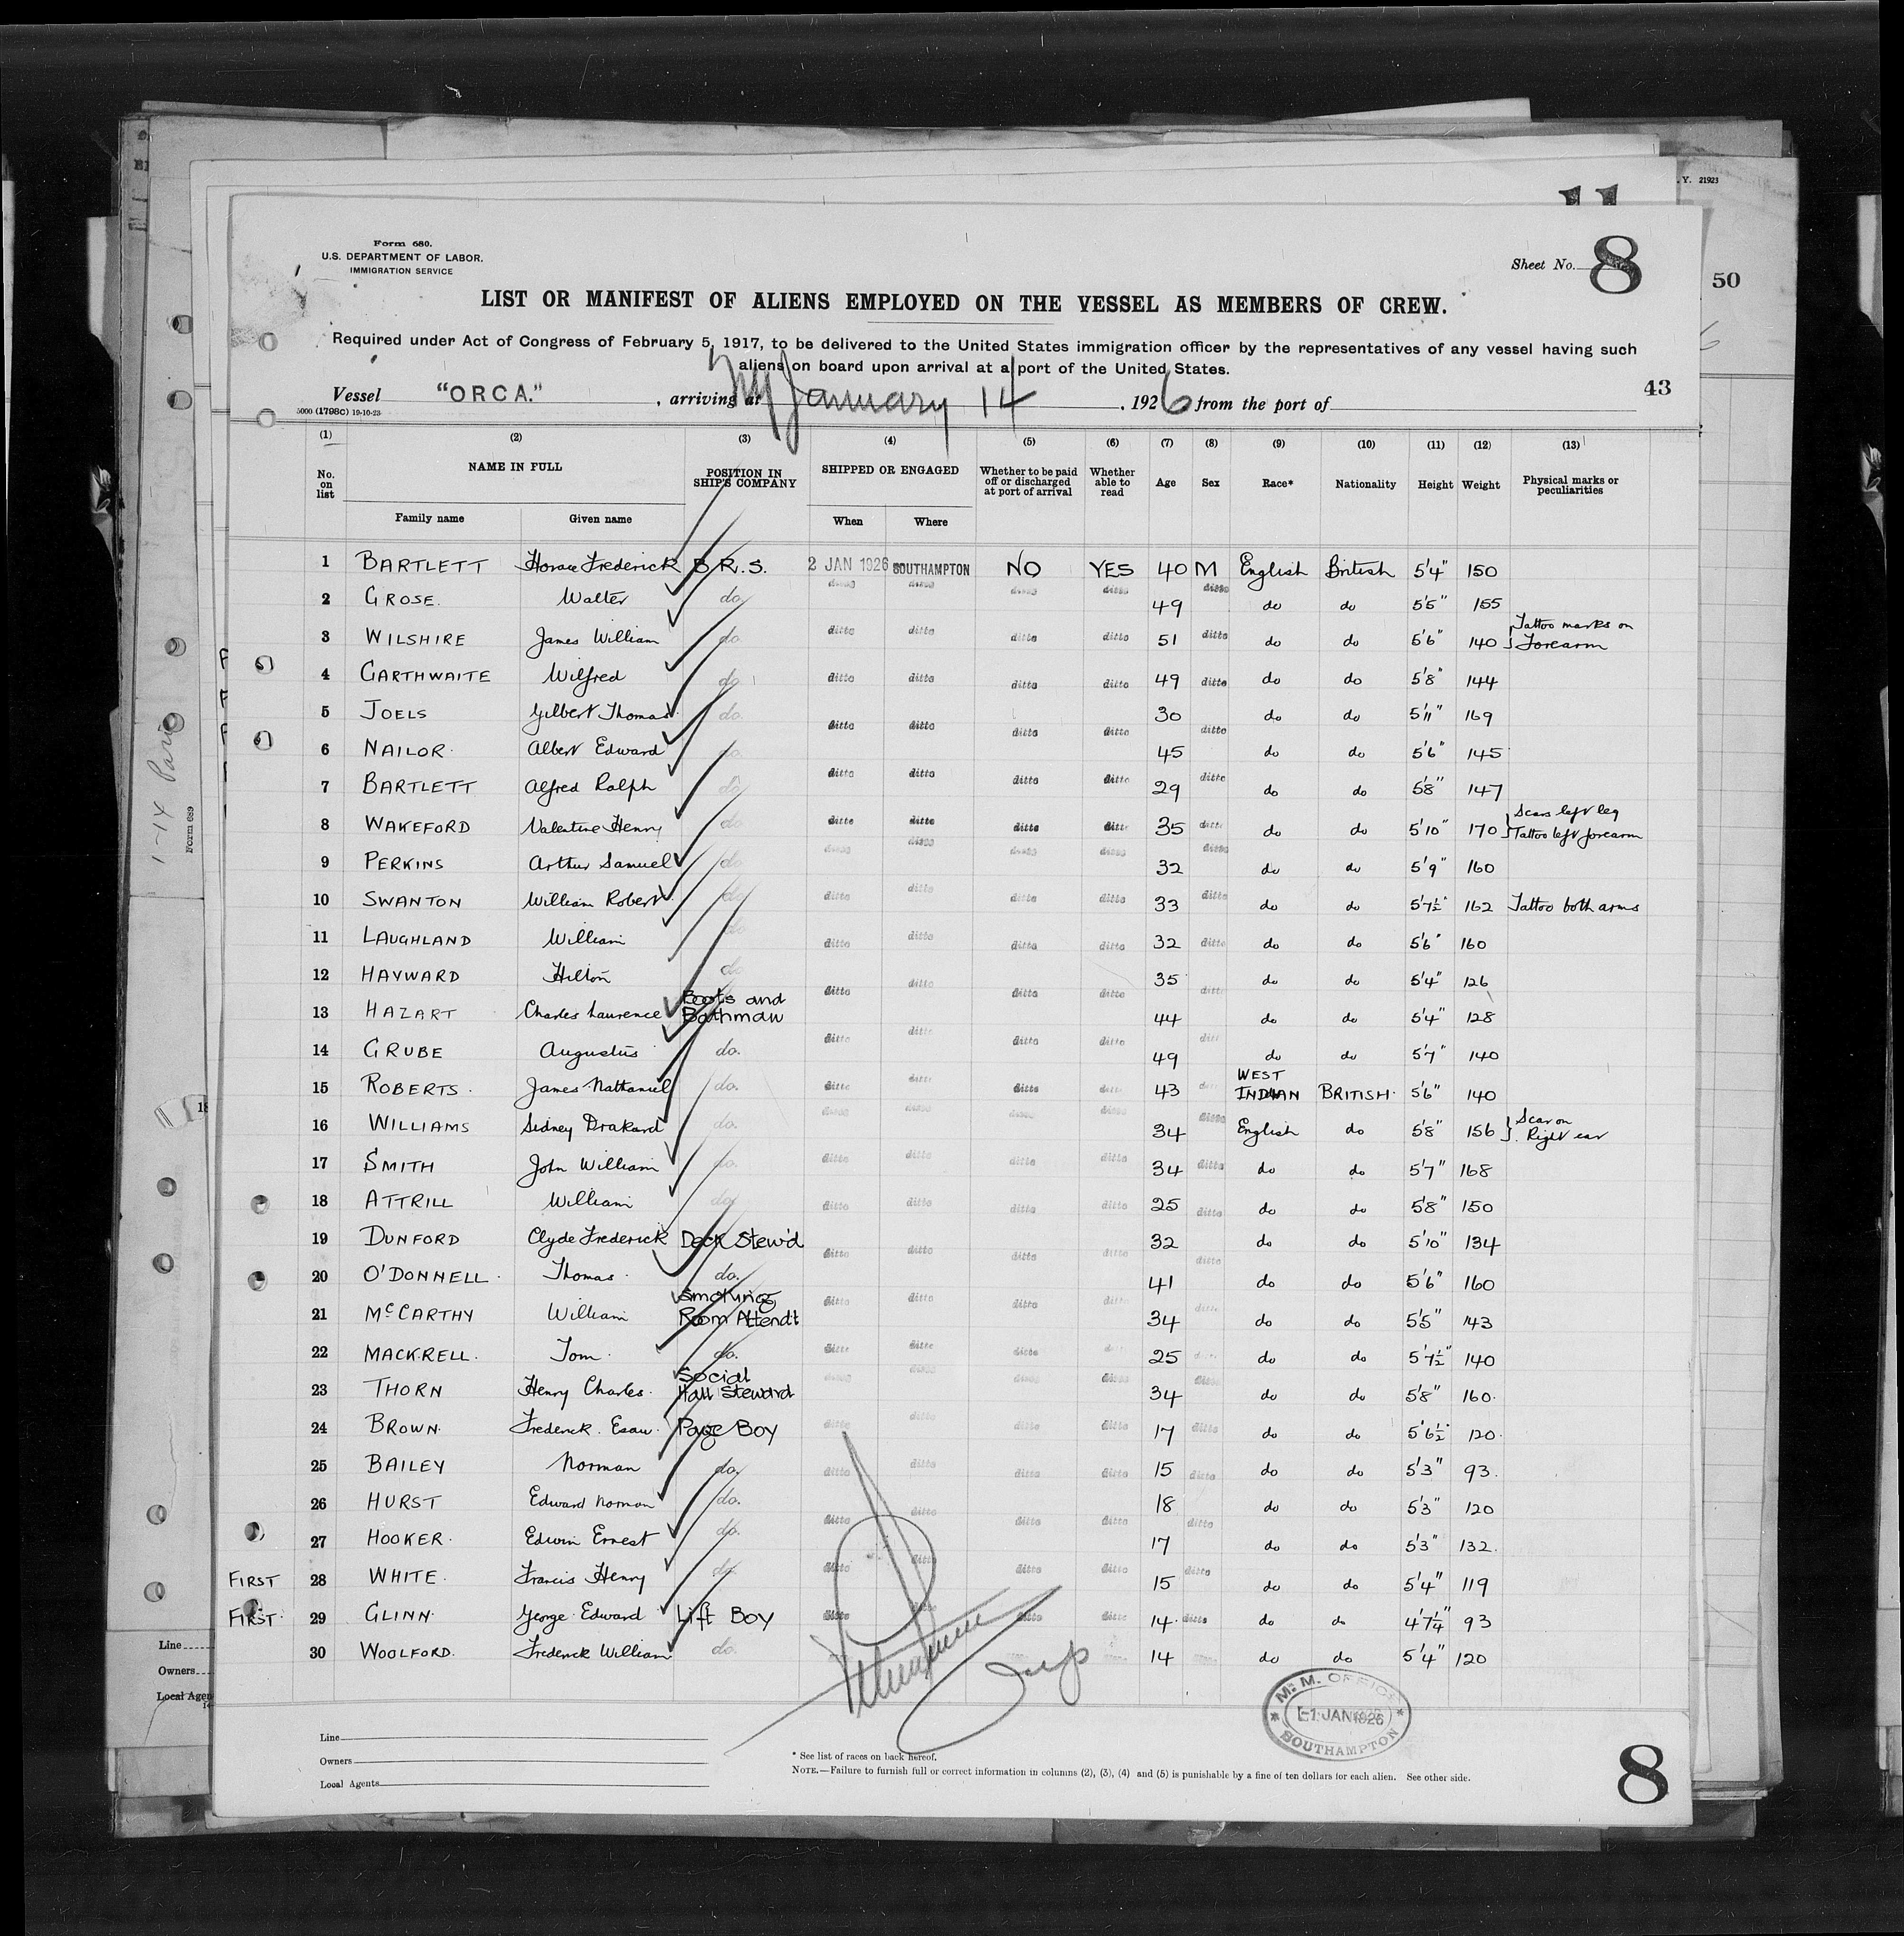 Y. 21923
11
Form 680.
U.S. DEPARTMENT OF LABOR.
IMMIGRATION SERVICE
Sheet No. 8
50
LIST OR MANIFEST OF ALIENS EMPLOYED ON THE VESSEL AS MEMBERS OF CREW.
Required under Act of Congress of February 5, 1917, to be delivered to the United States immigration officer by the representatives of any vessel having such
aliens on board upon arrival at a port of the United States.
43
Vessel "ORCA." , arriving at NY January 14 , 1926 from the port of
5000 (1798C) 19-10-23
(1) (2) (3) (4) (5) (6) (7) (8) (9) (10) (11) (12) (13)
No. on list NAME IN FULL POSITION IN SHIP'S COMPANY SHIPPED OR ENGAGED Whether to be paid off or discharged at port of arrival Whether able to read Age Sex Race* Nationality Height Weight Physical marks or peculiarities
Family name Given name When Where
1 BARTLETT Horace Frederick B.R.S. 2 JAN 1926 SOUTHAMPTON NO YES 40 M English British 5'4" 150
2 GROSE. Walter do. ditto ditto ditto ditto 49 ditto do do 5'5" 155
3 WILSHIRE James William do. ditto ditto ditto ditto 51 ditto do do 5'6" 140 } Tattoo marks on Forearm
4 GARTHWAITE Wilfred do ditto ditto ditto ditto 49 ditto do do 5'8" 144
5 JOELS Gilbert Thomas do. ditto ditto ditto ditto 30 ditto do do 5'11" 169
6 NAILOR. Albert Edward do 45 do do 5'6" 145
7 BARTLETT Alfred Ralph do ditto ditto ditto ditto 29 ditto do do 5'8" 147
8 WAKEFORD Valentine Henry do ditto ditto ditto ditto 35 ditto do do 5'10" 170 } Scars left leg Tattoo left forearm
9 PERKINS Arthur Samuel do ditto ditto ditto ditto 32 ditto do do 5'9" 160
10 SWANTON William Robert do ditto ditto ditto ditto 33 ditto do do 5'7½" 162 Tattoo both arms
11 LAUGHLAND William do ditto ditto ditto ditto 32 ditto do do 5'6" 160
12 HAYWARD Hilton do ditto ditto ditto ditto 35 ditto do do 5'4" 126
13 HAZART Charles Laurence Boots and Bathman 44 do do 5'4" 128
14 GRUBE Augustus do. ditto ditto ditto ditto 49 ditto do do 5'7" 140
15 ROBERTS. James Nathaniel do. ditto ditto ditto ditto 43 ditto WEST INDIAN BRITISH. 5'6" 140
16 WILLIAMS Sidney Drakard do. ditto ditto ditto ditto 34 ditto English do 5'8" 156 } Scar on Right ear
17 SMITH John William do. ditto ditto ditto ditto 34 ditto do do 5'7" 168
18 ATTRILL William do ditto ditto ditto ditto 25 ditto do do 5'8" 150
19 DUNFORD Clyde Frederick Deck Stew'd ditto ditto ditto ditto 32 ditto do do 5'10" 134
20 O'DONNELL. Thomas. do. 41 do do 5'6" 160
21 McCARTHY William Smoking Room Attendt ditto ditto ditto ditto 34 ditto do do 5'5" 143
22 MACKRELL. Tom. do. ditto ditto ditto ditto 25 ditto do do 5'7½" 140
23 THORN Henry Charles. Social Hall Steward ditto ditto ditto ditto 34 ditto do do 5'8" 160.
24 BROWN. Frederick. Esau. Page Boy ditto ditto ditto ditto 17 ditto do do 5'6½" 120.
25 BAILEY Norman do. ditto ditto ditto ditto 15 ditto do do 5'3" 93.
26 HURST Edward Norman do. 18 do do 5'3" 120
27 HOOKER. Edwin Ernest do. ditto ditto ditto ditto 17 ditto do do 5'3" 132.
FIRST 28 WHITE. Francis Henry do. ditto ditto ditto ditto 15 ditto do do 5'4" 119
FIRST. 29 GLINN. George Edward Lift Boy ditto ditto ditto ditto 14. ditto do do 4'7¼" 93
30 WOOLFORD. Frederick William do. 14 do do 5'4" 120
M. M. OFFICE
-1 JAN 1926
SOUTHAMPTON
Line
Owners
Local Agents
* See list of races on back hereof.
NOTE.—Failure to furnish full or correct information in columns (2), (3), (4) and (5) is punishable by a fine of ten dollars for each alien. See other side.
8
1-14 Paris
Form 689
Line
Owners
Local Agen